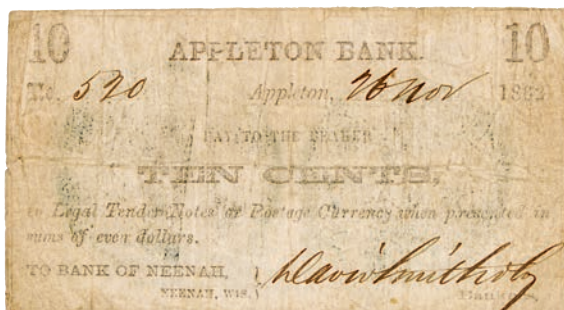 10 APPLETON BANK. 10
No. 520 Appleton, 26 Nov 1862
PAY TO THE BEARER
TEN CENTS,
in Legal Tender Notes or Postage Currency when presented in
sums of even dollars.
TO BANK OF NEENAH,
NEENAH, WIS. Bankers.